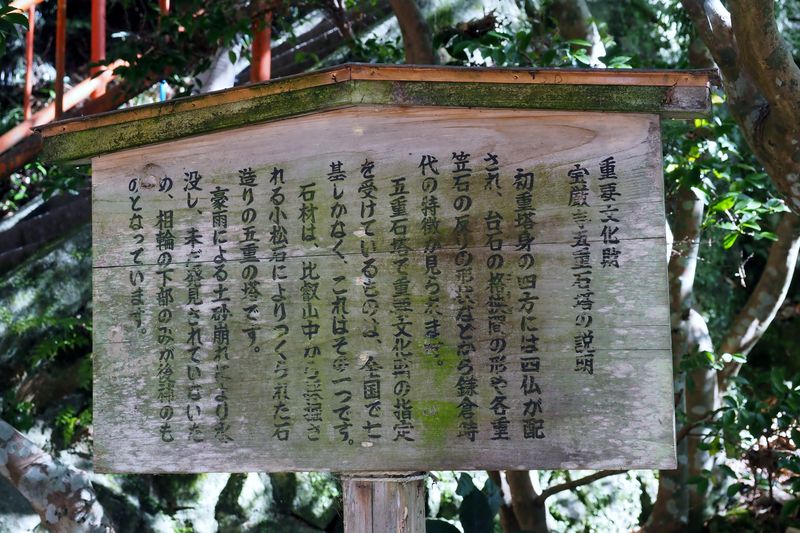 重要文化財
宝厳寺五重石塔の説明
初重塔身の四方には四仏が配
され、台石の格狭間の形や各重
笠石の反りの形状などから鎌倉時
代の特徴が見られます。
五重石塔で重要文化財の指定
を受けているものは、全国で七
基しかなく、これはその一つです。
石材は、比叡山中から採掘さ
れる小松石によりつくられた石
造りの五重の塔です。
豪雨による土砂崩れにより
没し、未だ発見されていないた
め、相輪の下部のみが後補のも
のとなっています。